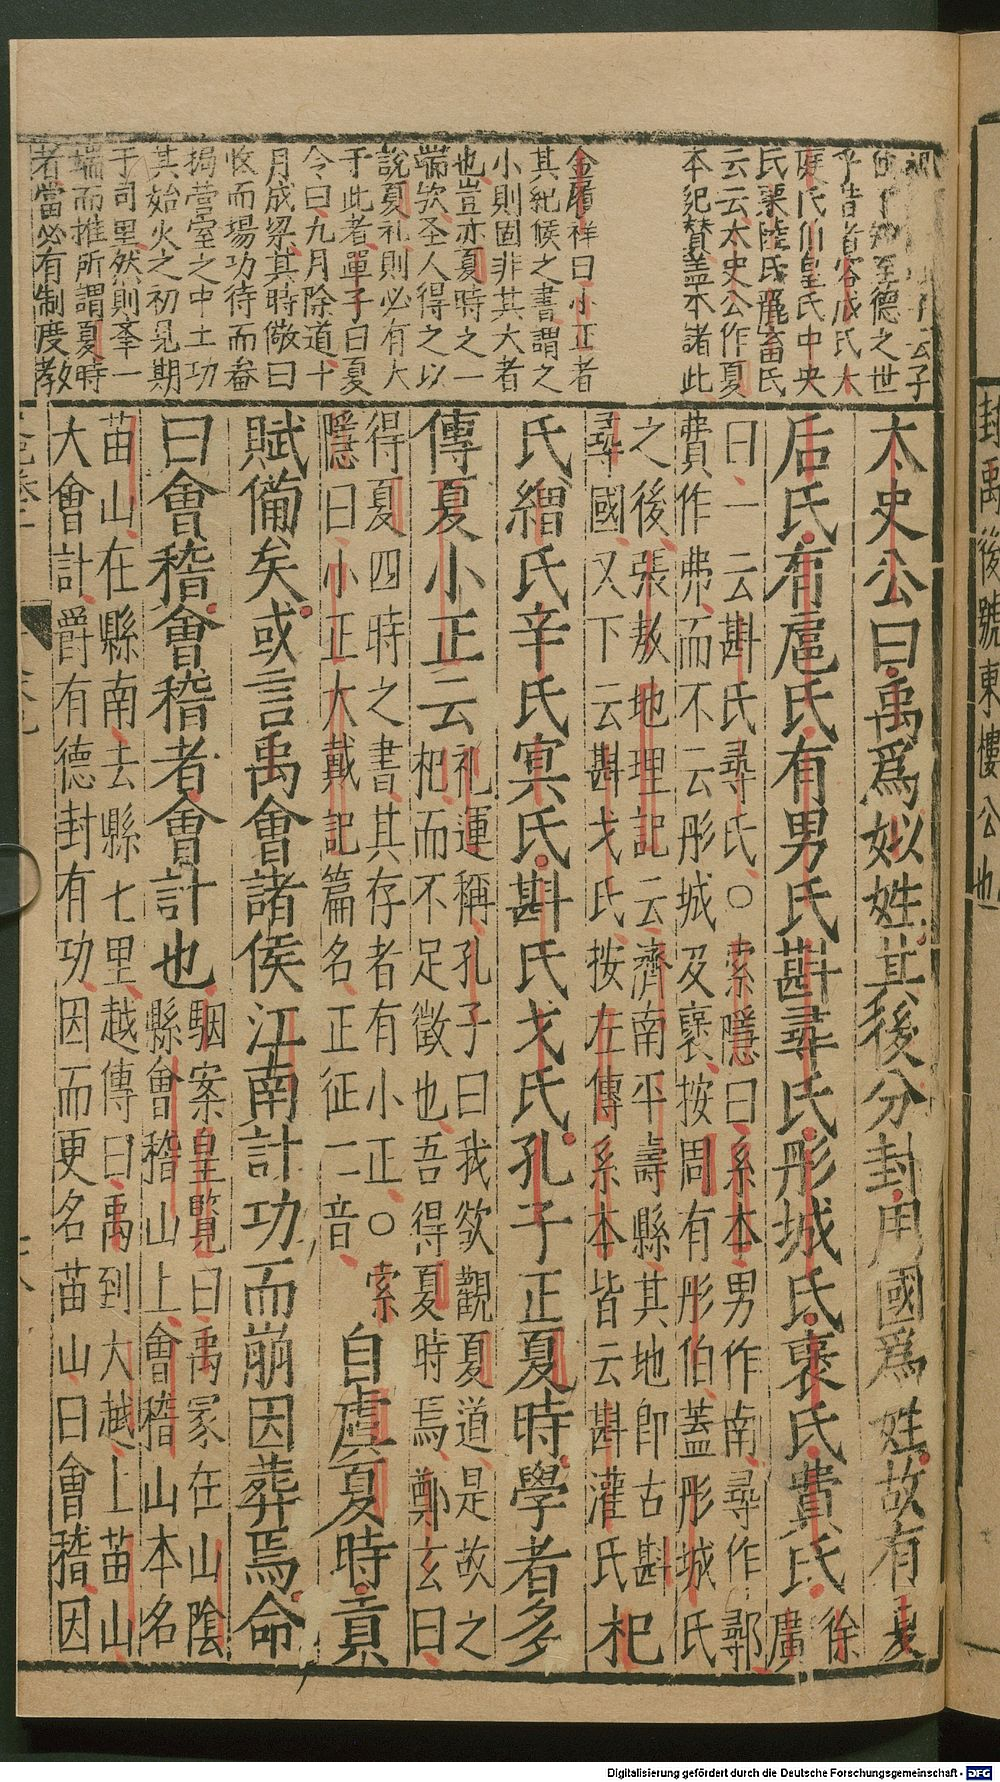 云子
知至德之世
乎昔者容成氏大
庭氏伯皇氏中央
氏栗陸氏驪畜氏
云云太史公作夏
本紀贊盖本諸此
金履祥曰小正者
其紀候之書謂之
小則固非其大者
也豈亦夏時之一
端欤圣人得之以
說夏礼則必有大
于此者單子曰夏
令曰九月除道十
月成梁其時儆曰
收而場功待而畚
挶营室之中土功
其始火之初見期
于司里然則舉一
端而推所謂夏時
者當必有制度教
封禹後號東樓公也
太史公曰禹爲姒姓其後分封用國爲姓故有夏
后氏有扈氏有男氏斟尋氏彤城氏褒氏費氏徐廣
曰一云斟氏尋氏○索隱曰系本男作南尋作鄩
費作弗而不云彤城及褒按周有彤伯蓋彤城氏
之後張敖地理記云濟南平壽縣其地即古斟
尋國又下云斟戈氏按左傳系本皆云斟灌氏杞
氏繒氏辛氏冥氏斟氏戈氏孔子正夏時學者多
傳夏小正云礼運稱孔子曰我欲觀夏道是故之
杞而不足徵也吾得夏時焉鄭玄曰
得夏四時之書其存者有小正○索
隱曰小正大戴記篇名正征二音自虞夏時貢
賦備矣或言禹會諸侯江南計功而崩因葬焉命
曰會稽會稽者會計也駰案皇覽曰禹冢在山陰
縣會稽山上會稽山本名
苗山在縣南去縣七里越傳曰禹到大越上苗山
大會計爵有德封有功因而更名苗山曰會稽因
Digitalisierung gefördert durch die Deutsche Forschungsgemeinschaft - DFG